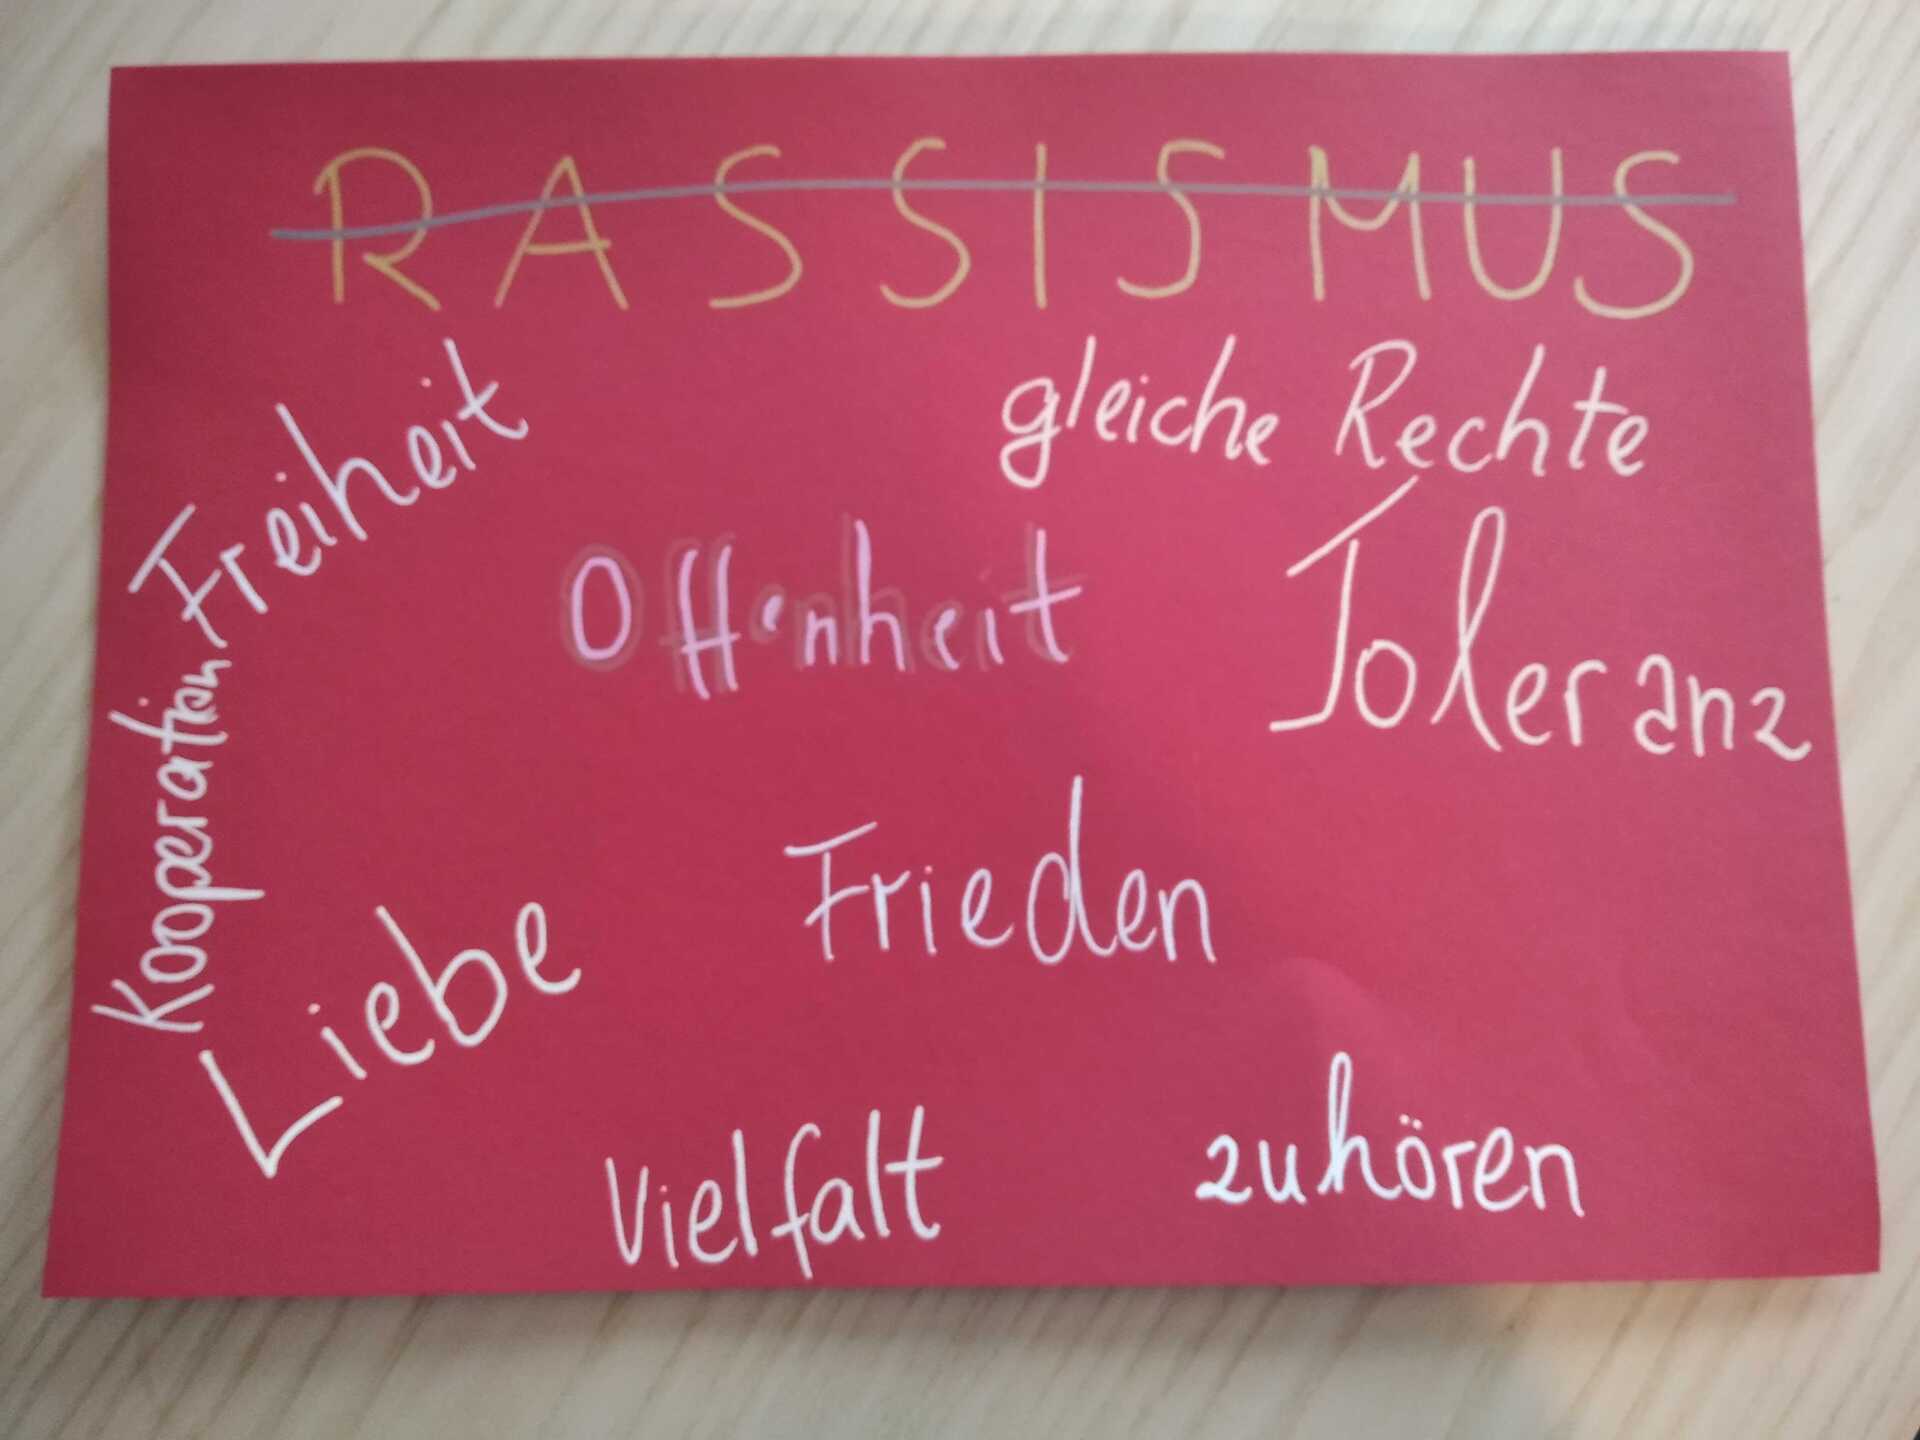 RASSISMUS
Freiheit
gleiche Rechte
Offenheit
Toleranz
Kooperation
Frieden
Liebe
Vielfalt
zuhören